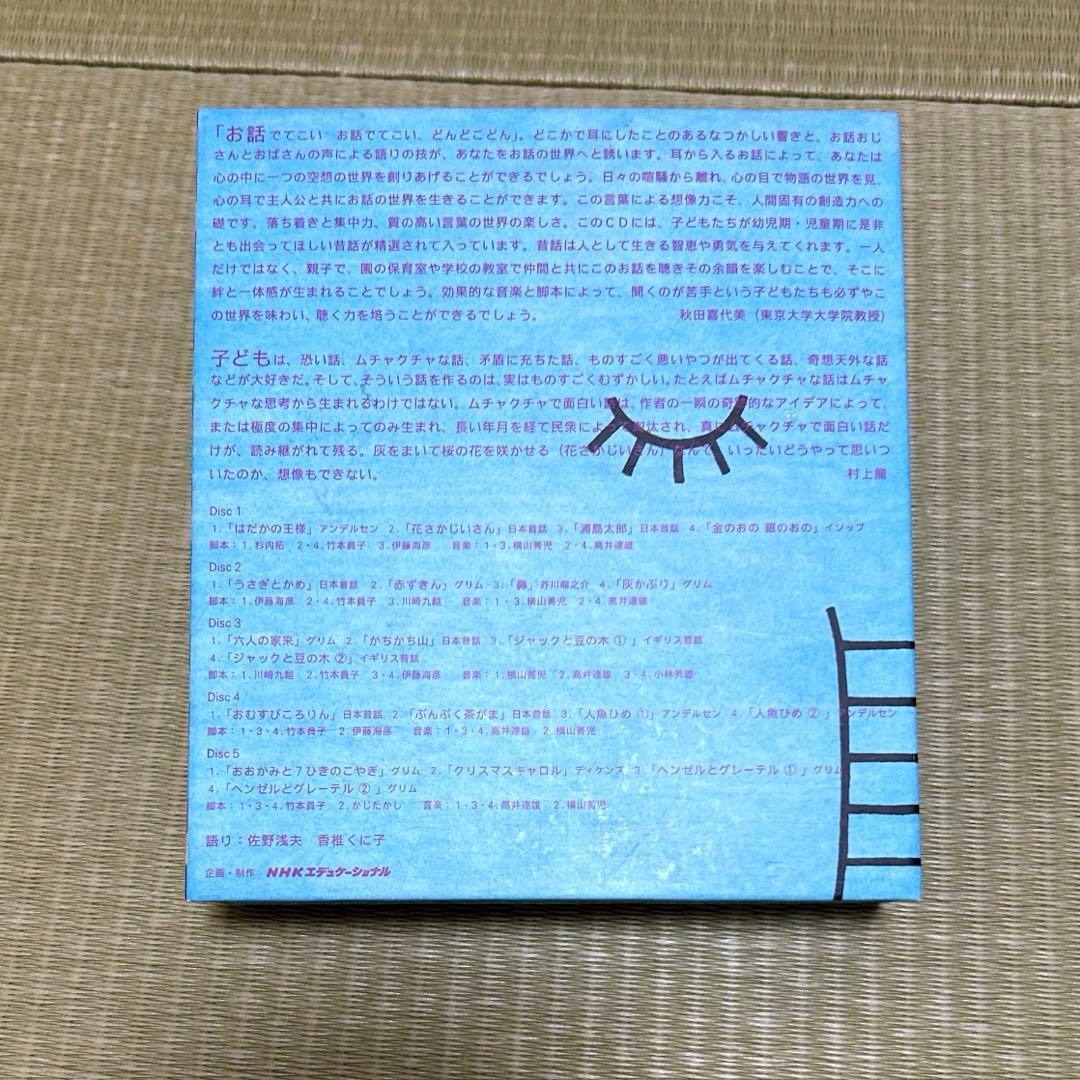 「お話でてこい　お話でてこい、どんどこどん」。どこかで耳にしたことのあるなつかしい響きと、お話おじ
さんとおばさんの声による語りの技が、あなたをお話の世界へと誘います。耳から入るお話によって、あなたは
心の中に一つの空想の世界を創りあげることができるでしょう。日々の喧騒から離れ、心の目で物語の世界を見、
心の耳で主人公と共にお話の世界を生きることができます。この言葉による想像力こそ、人間固有の創造力への
礎です。落ち着きと集中力、質の高い言葉の世界の楽しさ。このCDには、子どもたちが幼児期・児童期に是非
とも出会ってほしい昔話が精選されて入っています。昔話は人として生きる智恵や勇気を与えてくれます。一人
だけではなく、親子で、園の保育室や学校の教室で仲間と共にこのお話を聴きその余韻を楽しむことで、そこに
絆と一体感が生まれることでしょう。効果的な音楽と脚本によって、聞くのが苦手という子どもたちも必ずやこ
の世界を味わい、聴く力を培うことができるでしょう。　秋田喜代美（東京大学大学院教授）
子どもは、恐い話、ムチャクチャな話、矛盾に充ちた話、ものすごく悪いやつが出てくる話、奇想天外な話
などが大好きだ。そして、そういう話を作るのは、実はものすごくむずかしい。たとえばムチャクチャな話はムチャ
クチャな思考から生まれるわけではない。ムチャクチャで面白い話は、作者の一瞬の奇跡的なアイデアによって、
または極度の集中によってのみ生まれ、長い年月を経て民衆によって淘汰され、真にムチャクチャで面白い話だ
けが、読み継がれて残る。灰をまいて桜の花を咲かせる（花さかじいさん）なんて、いったいどうやって思いつ
いたのか、想像もできない。　村上龍
Disc 1
1.「はだかの王様」アンデルセン　2.「花さかじいさん」日本昔話　3.「浦島太郎」日本昔話　4.「金のおの 銀のおの」イソップ
脚本：1.杉内拓　2・4.竹本員子　3.伊藤海彦　音楽：1・3.横山菁児　2・4.高井達雄
Disc 2
1.「うさぎとかめ」日本昔話　2.「赤ずきん」グリム　3.「鼻」芥川龍之介　4.「灰かぶり」グリム
脚本：1.伊藤海彦　2・4.竹本員子　3.川崎九越　音楽：1・3.横山菁児　2・4.高井達雄
Disc 3
1.「六人の家来」グリム　2.「かちかち山」日本昔話　3.「ジャックと豆の木 ①」イギリス昔話
4.「ジャックと豆の木 ②」イギリス昔話
脚本：1.川崎九越　2.竹本員子　3・4.伊藤海彦　音楽：1.横山菁児　2.高井達雄　3・4.小林秀雄
Disc 4
1.「おむすびころりん」日本昔話　2.「ぶんぶく茶がま」日本昔話　3.「人魚ひめ ①」アンデルセン　4.「人魚ひめ ②」アンデルセン
脚本：1・3・4.竹本員子　2.伊藤海彦　音楽：1・3・4.高井達雄　2.横山菁児
Disc 5
1.「おおかみと7ひきのこやぎ」グリム　2.「クリスマスキャロル」ディケンズ　3.「ヘンゼルとグレーテル ①」グリム
4.「ヘンゼルとグレーテル ②」グリム
脚本：1・3・4.竹本員子　2.かじたかし　音楽：1・3・4.高井達雄　2.横山菁児
語り：佐野浅夫　香椎くに子
企画・制作　NHKエデュケーショナル